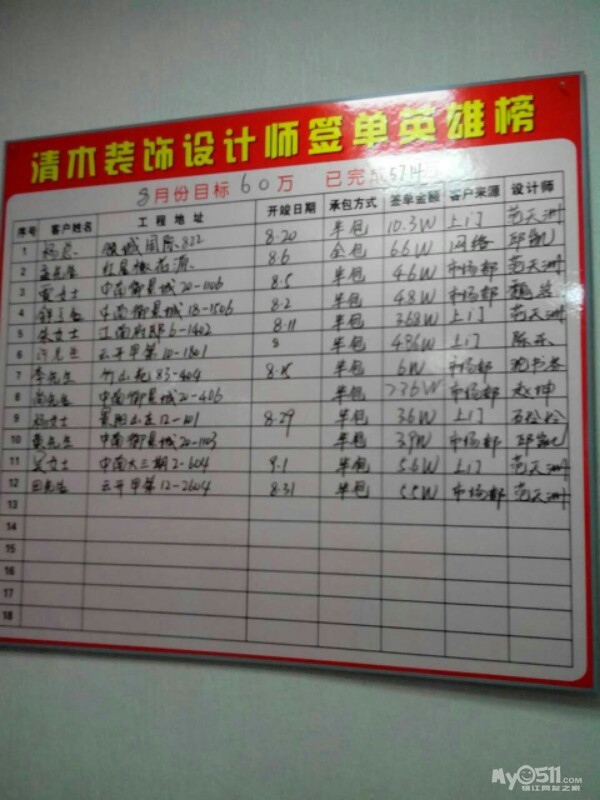 清木装饰设计师签单英雄榜
8月份目标60万 已完成57.4
序号 客户姓名 工程地址 开竣日期 承包方式 签单金额 客户来源 设计师
1 杨总 822 8.20 半包 10.3W 上门 范天洲
2 红星 8.6 全包 6.6W 网络 邱凯
3 女士 中南御景城20-1106 8.5 半包 4.6W 市场部 范天洲
4 中南御景城18-1506 8.2 半包 4.8W 市场部 魏
5 女士 江南府邸6-1402 8.11 半包 3.68W 上门 范天洲
6 许先生 云开甲第10-1801 8 半包 4.86W 上门 陈
7 李先生 竹山苑83-404 8.15 半包 6W 市场部
8 先生 中南御景城20-406 半包 2.36W 市场部 赵坤
9 杨女士 山庄12-101 8.29 半包 3.6W 上门
10 先生 中南御景城20-1103 半包 3.9W 市场部 邱凯
11 吴女士 中南大三期2-604 8.1 半包 5.6W 上门 范天洲
12 田先生 云开甲第12-2604 8.31 半包 5.5W 市场部 范天洲
13
14
15
16
17
18
My0511.com
镇江网友之家